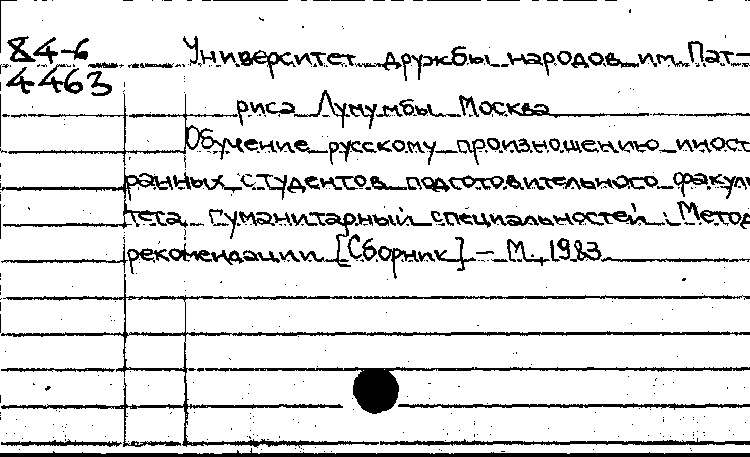 84-6
4463
Университет дружбы народов им. Пат-
риса Лумумбы Москва
Обучение русскому произношению иност
ранных студентов подготовительного факуль
тета гуманитарный специальностей : Метод
рекомендации [Сборник] - М., 1983